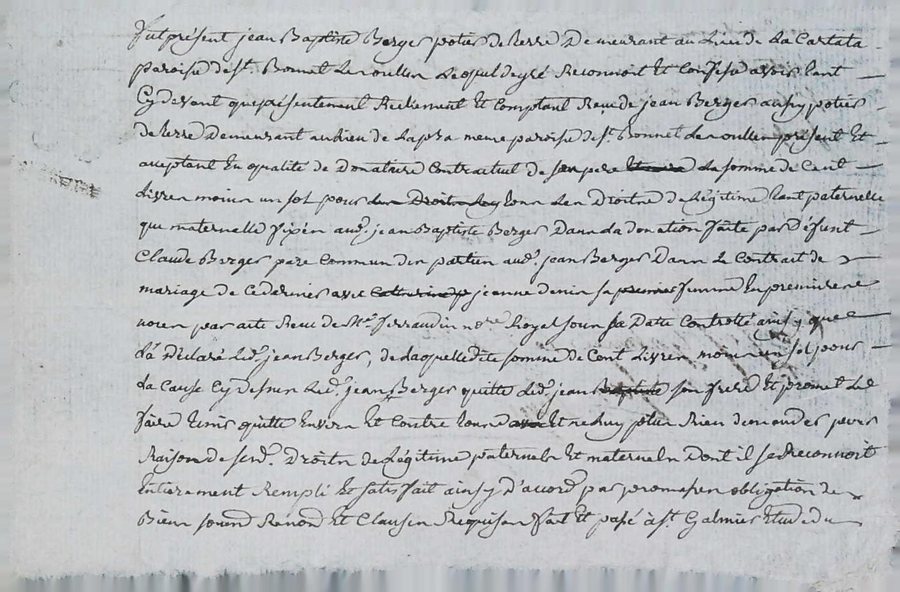 fut présent jean Baptiste Berger potier de terre Demeurant au Lieu de La Cartala
paroisse de st. Bonnet Les oulles Lequel de gré Reconnoit Et Confesse avoir tant
Cy devant que présentement Réellement Et Comptant Reçu de jean Berger aussy potier
de terre Demeurant au Lieu de Lapra meme paroisse de st. Bonnet Les oulles présent Et
acceptant En qualité de Donataire Contractuel de son pere La somme de Cent
Livres moins un sol pour Les Droits Les Droits de Légitime tant paternelle
que maternelle fixés aud. jean Baptiste Berger Dans La donation faite par Défunt
Claude Berger pere Commun des parties aud. jean Berger Dans Le Contrait de
mariage de Ce dernier avec Catherine jeanne denis sa premiere femme En premieres
noces par acte Recu de Me. ferraudin nore. Royal sous sa Datte Controllé ainsy que
L'a Déclaré Led. jean Berger, de Laquelle dite somme de Cent Livres moins un sol pour
La Cause Cy dessus Led. jean Berger quitte Led. jean Baptiste son frere Et promet Le
faire tenir quitte Envers Et Contre tous Et ne luy plus Rien demander pour
Raison de sesd. Droits de Légitime paternels Et maternels Dont il se Reconnoit
Entierement Rempli Et satisfait ainsy D'accord par promesses obligation de
Biens soumd. Renond. Et Clauses Requises fait Et passé à st. Galmier Etude du